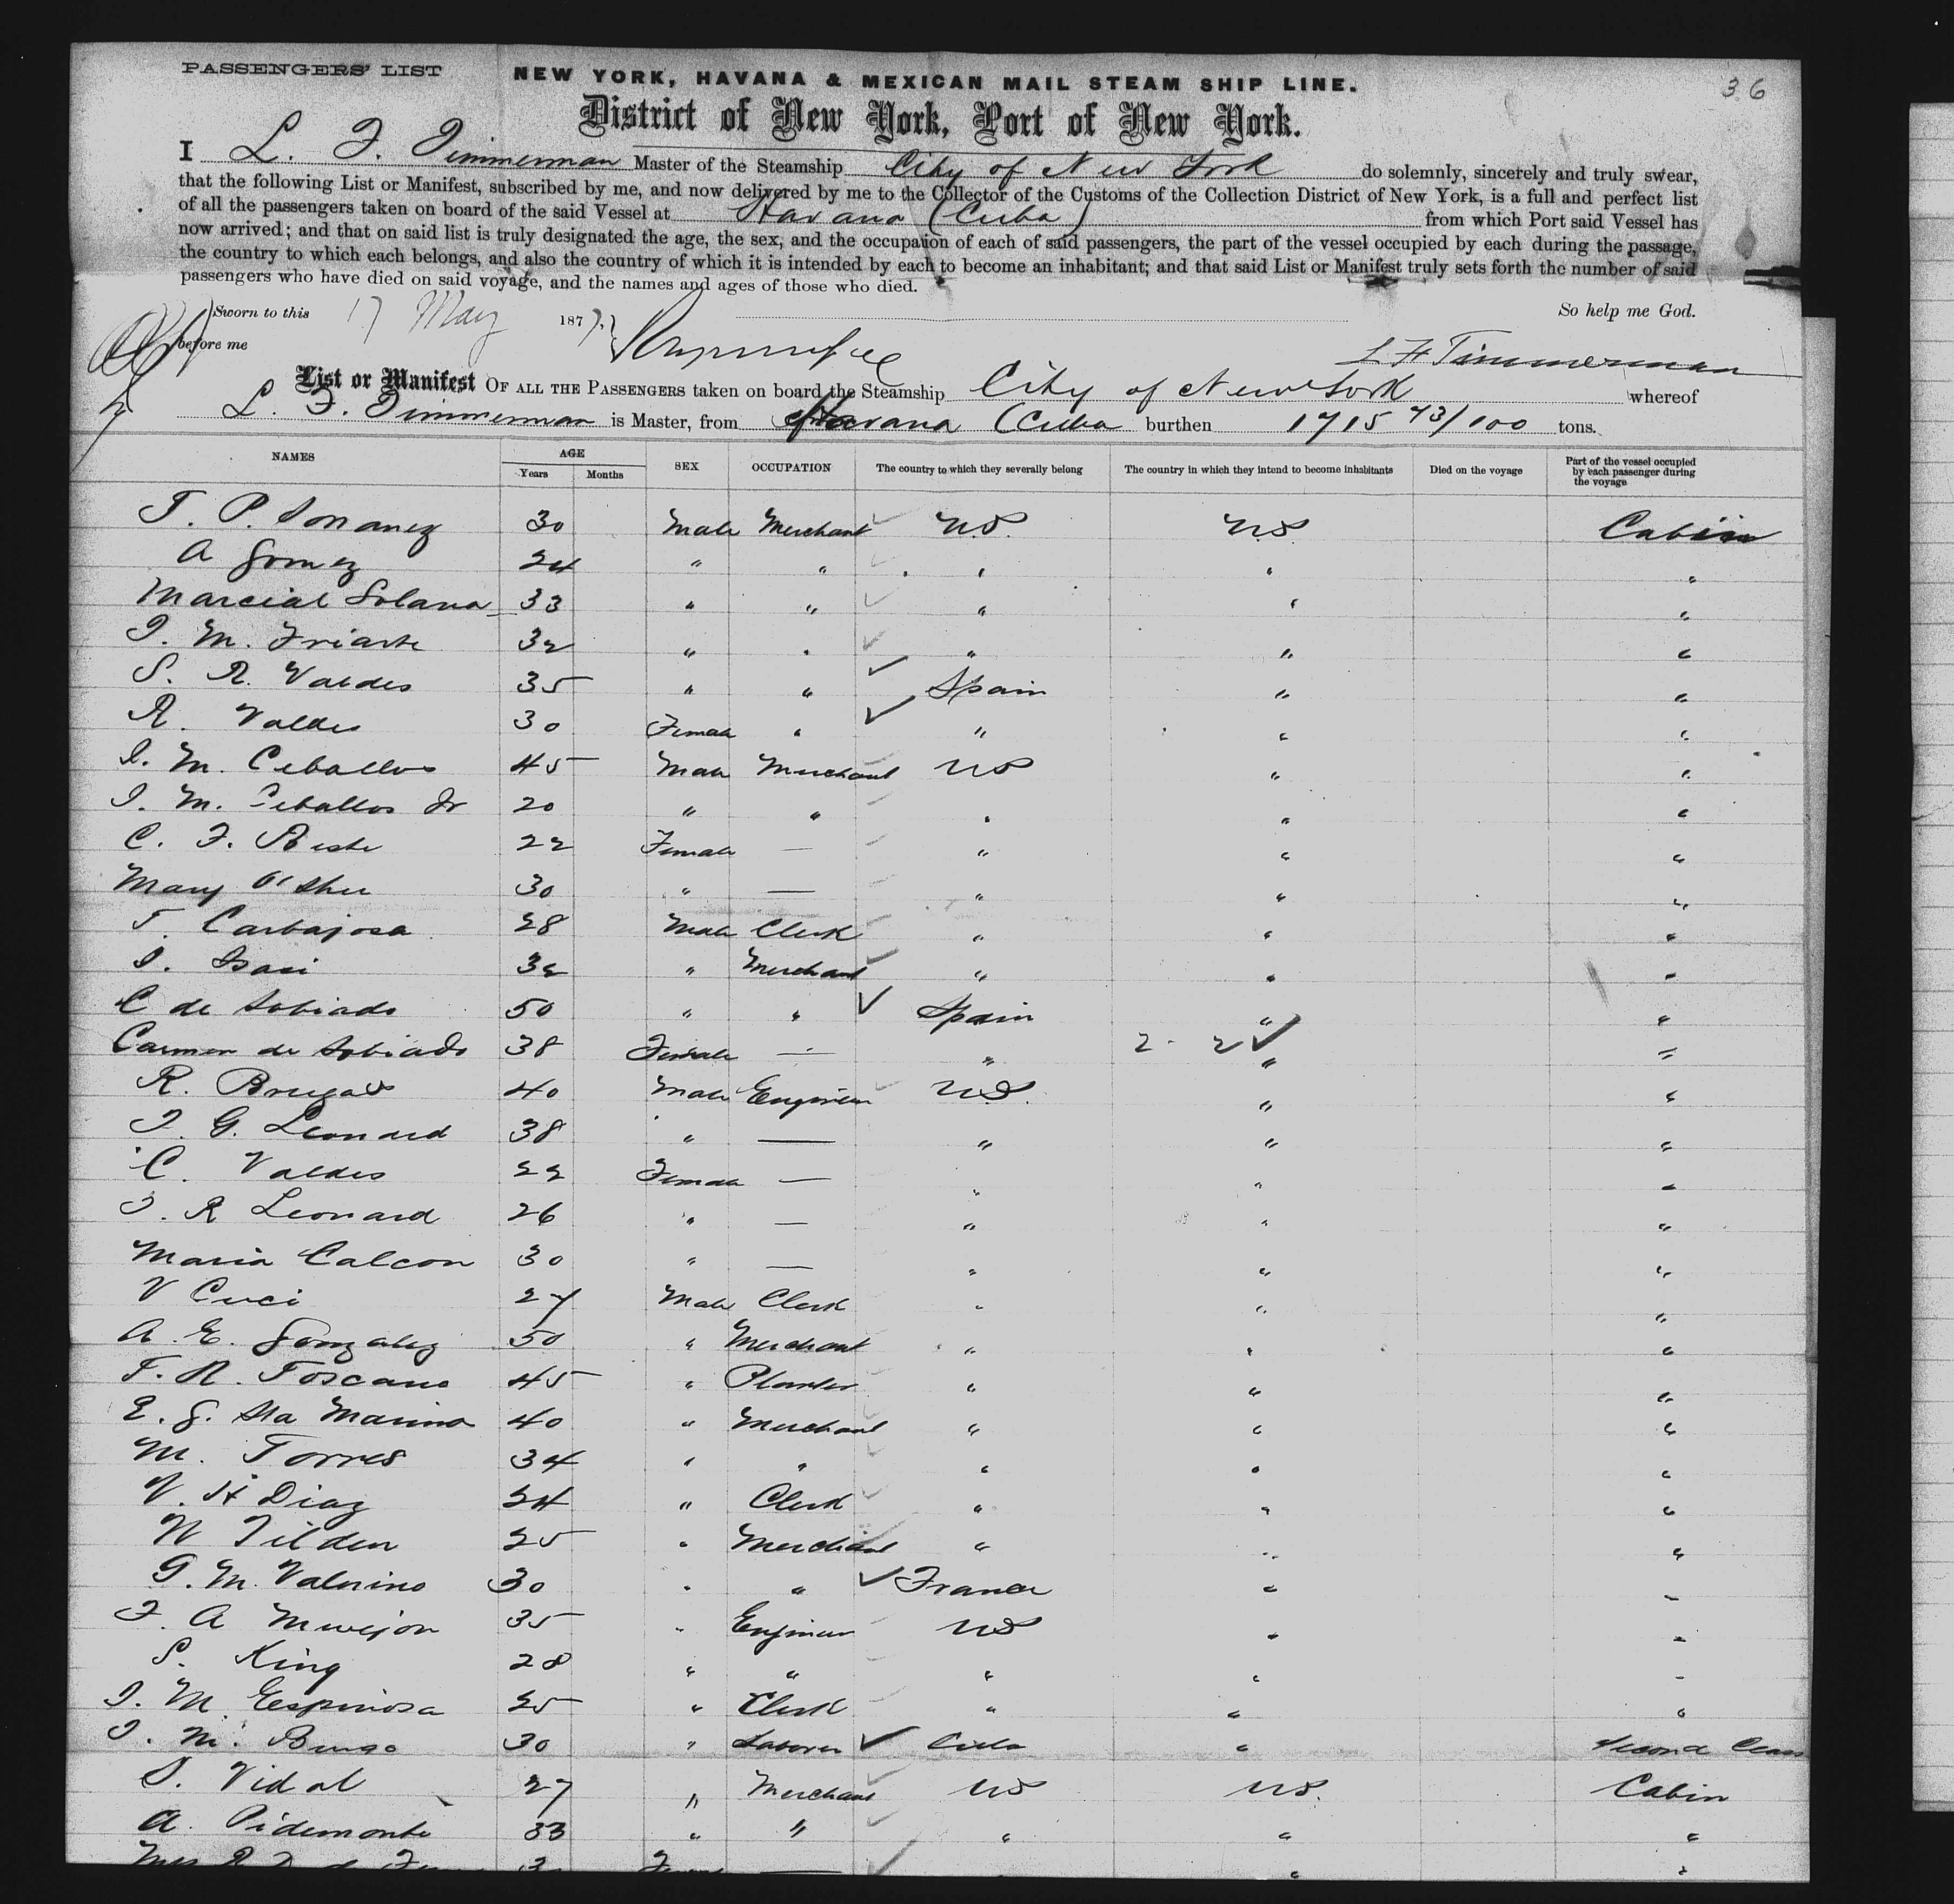 36
PASSENGERS' LIST
NEW YORK, HAVANA & MEXICAN MAIL STEAM SHIP LINE.
District of New York, Port of New York.
I L. F. Timmerman Master of the Steamship City of New York do solemnly, sincerely and truly swear,
that the following List or Manifest, subscribed by me, and now delivered by me to the Collector of the Customs of the Collection District of New York, is a full and perfect list
of all the passengers taken on board of the said Vessel at Havana (Cuba) from which Port said Vessel has
now arrived; and that on said list is truly designated the age, the sex, and the occupation of each of said passengers, the part of the vessel occupied by each during the passage,
the country to which each belongs, and also the country of which it is intended by each to become an inhabitant; and that said List or Manifest truly sets forth the number of said
passengers who have died on said voyage, and the names and ages of those who died.
Sworn to this 17 May 1877, So help me God.
before me L F Timmerman
List or Manifest OF ALL THE PASSENGERS taken on board the Steamship City of New York whereof
L. F. Timmerman is Master, from Havana (Cuba burthen 1715 73/100 tons.
NAMES AGE Years Months SEX OCCUPATION The country to which they severally belong The country in which they intend to become inhabitants Died on the voyage Part of the vessel occupied by each passenger during the voyage
T. P. 30 Male Merchant U.S. U.S. Cabin
A Gomez 24 " " " " "
Marcial Solana 33 " " " " "
I. M. Iriarte 32 " " " " "
S. R. Valdes 35 " " Spain " "
R. Valdes 30 Female " " " "
I. M. Ceballos 45 Male Merchant US " "
I. M. Ceballos Jr 20 " " " " "
C. F. 22 Female — " " "
Mary 30 " — " " "
T. Carbajosa 28 Male Clerk " " "
I. Isasi 32 " Merchant " " "
C de Sobiado 50 " " Spain " "
Carmen de Sobiado 38 Female — " 2 - 2 " "
R. Brugas 40 Male Engineer U.S. " "
I. G. Leonard 38 " — " " "
C. Valdes 22 Female — " " "
I. R Leonard 26 " — " " "
Maria Calcon 30 " — " " "
V Cuci 27 Male Clerk " " "
A. E. Gonzalez 50 " Merchant " " "
F. R. Toscano 45 " Planter " " "
E. G. Sta Marina 40 " Merchant " " "
M. Torres 34 " " " " "
V. H Diaz 24 " Clerk " " "
W Tilden 25 " Merchant " " "
G. M. Valerino 30 " " France " "
F. A 35 " Engineer US " "
S. King 28 " " " " "
I. M. Espinosa 25 " Clerk " " "
I. M. 30 " Laborer Cuba " Second Class
S. Vidal 27 " Merchant US US. Cabin
A. Pidemonte 33 " " " " "